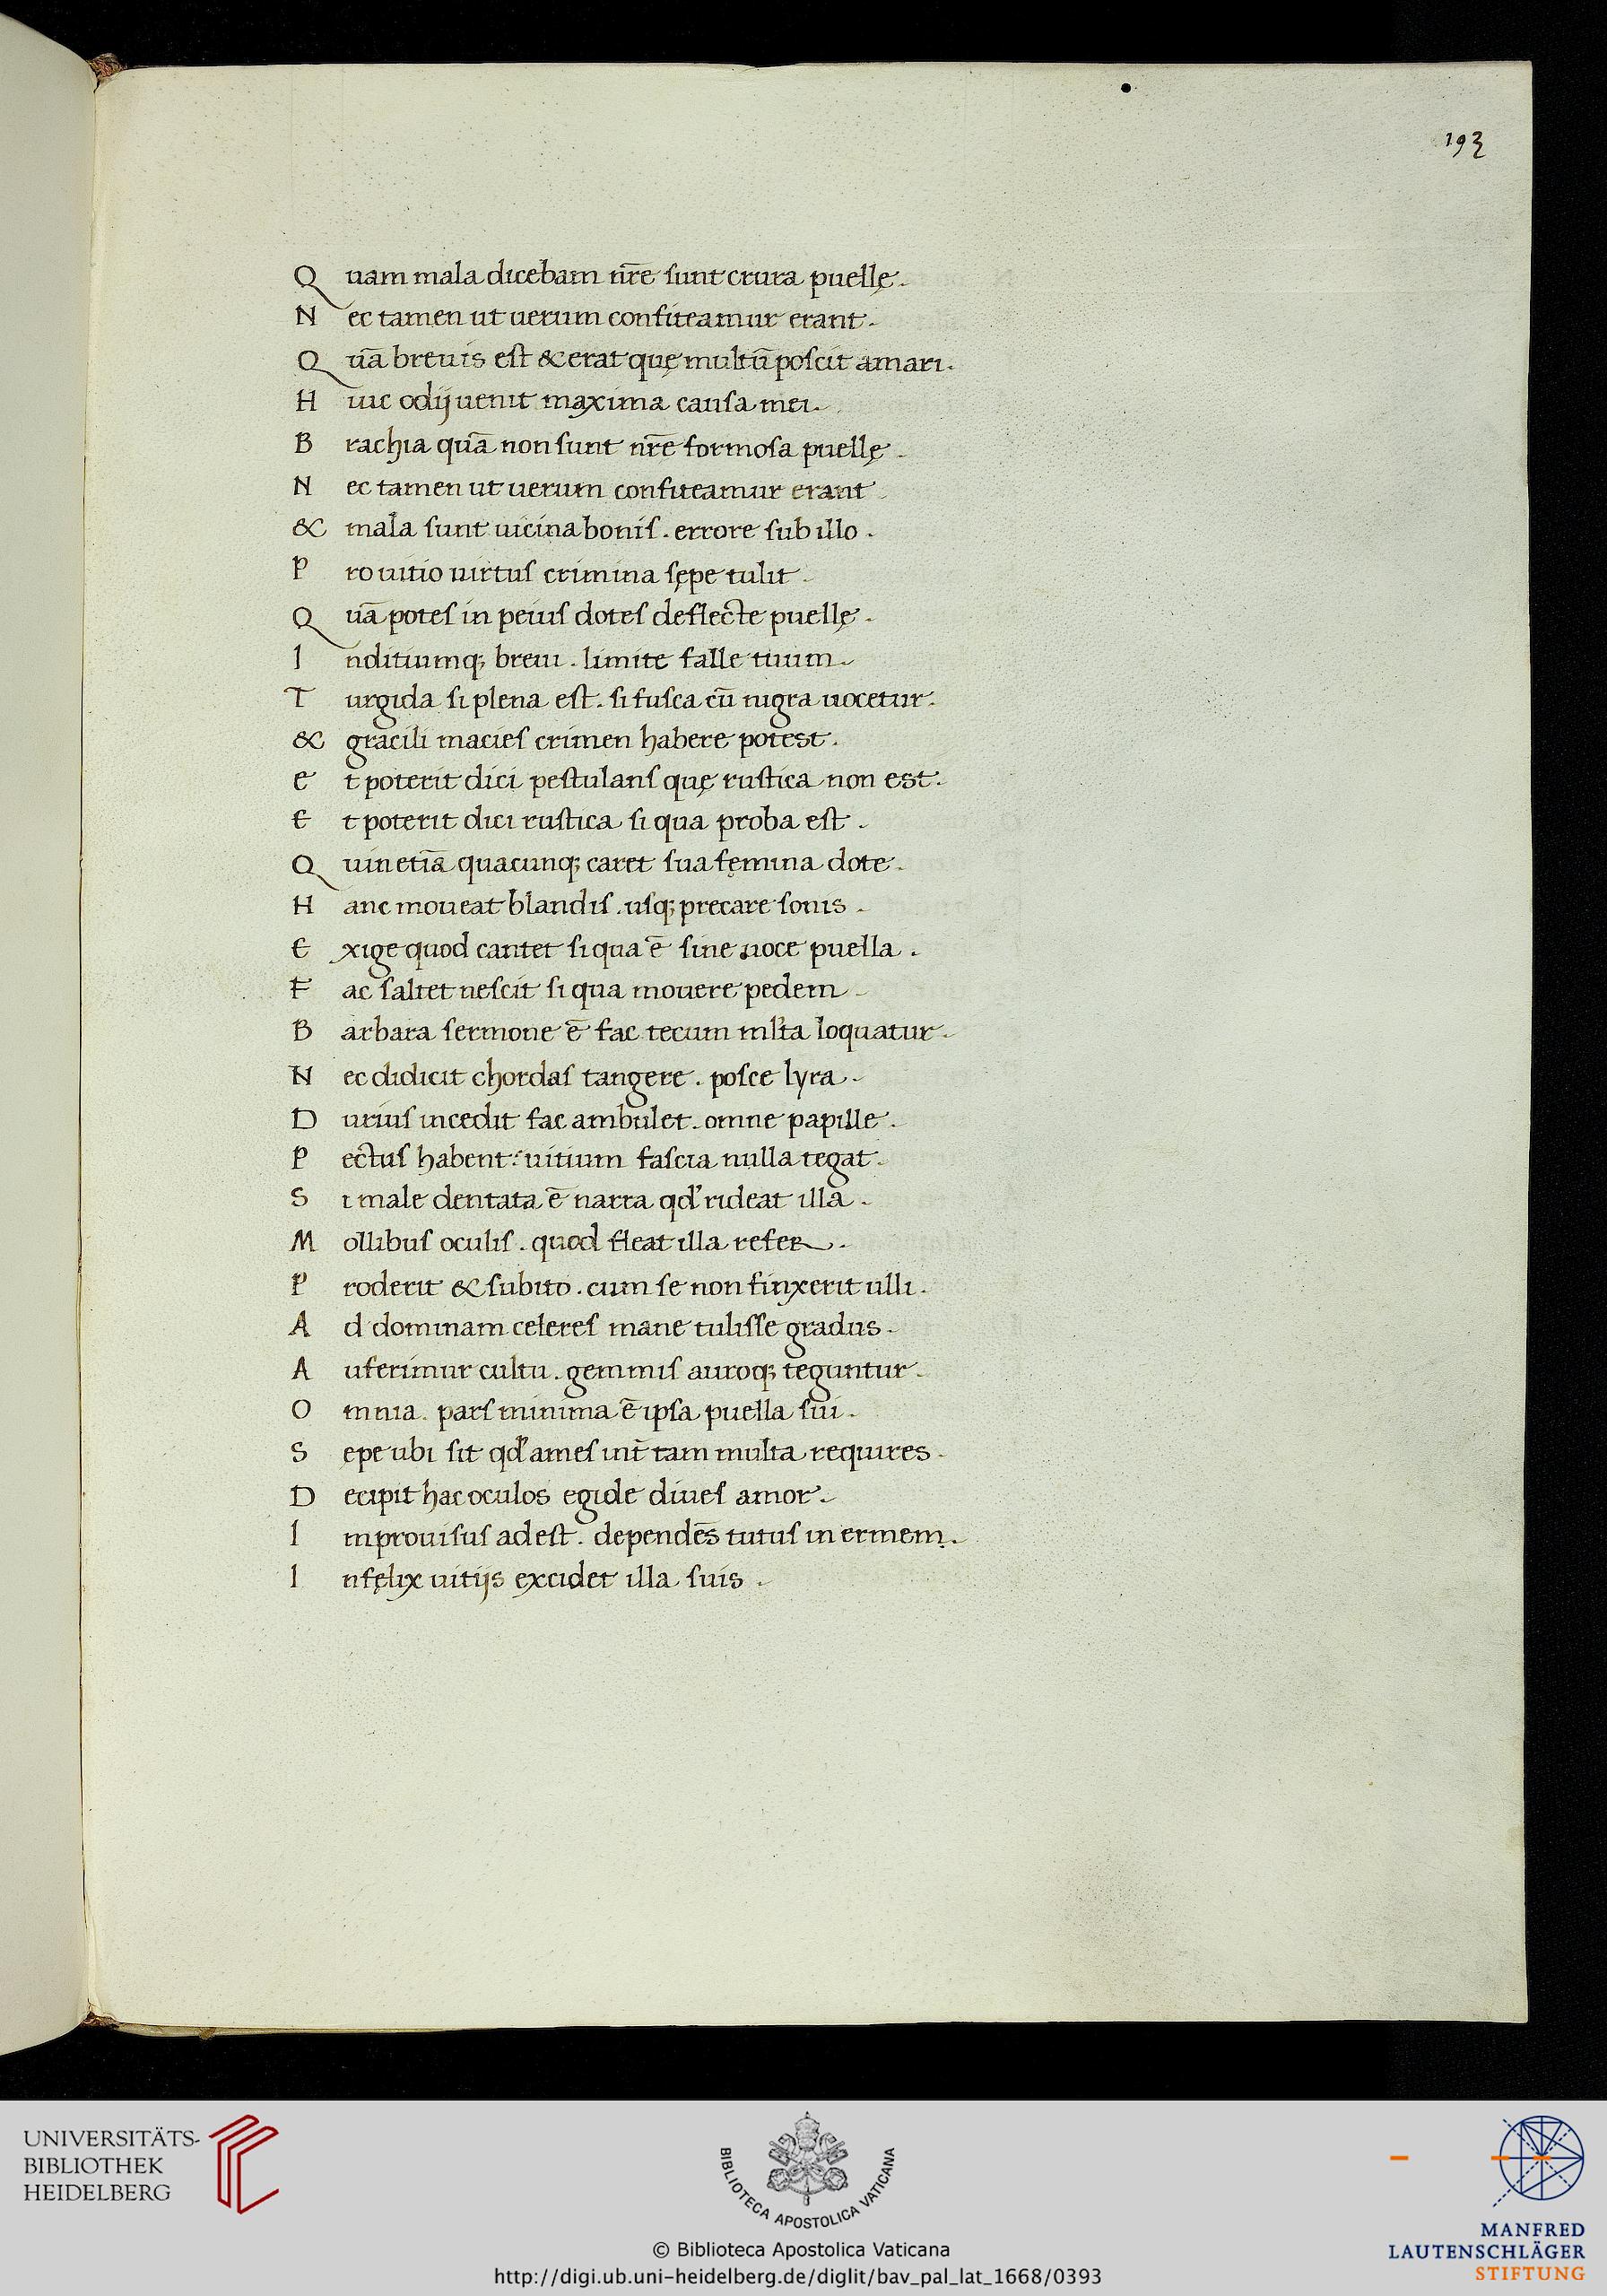 193
Quam mala dicebam nr̄e sunt crura puellę.
Nec tamen ut uerum confiteamur erant.
Quā breuis est & erat quę multū poscit amari.
Huic odij uenit maxima causa mei.
Brachia quā non sunt nr̄e formosa puellę.
Nec tamen ut uerum confiteamur erant.
& mala sunt uicina bonis. errore sub illo.
Pro uitio uirtus crimina sępe tulit.
Quā potes in peius dotes deflecte puellę.
Inditiumq; breui. limite falle tuum.
Turgida si plena est. si fusca cū nigra uocetur.
& gracili macies crimen habere potest.
et poterit dici pestulans quę rustica non est.
Et poterit dici rustica si qua proba est.
Quin etiā quacunq; caret sua fęmina dote.
Hanc moueat blandis. usq; precare sonis.
Exige quod cantet si qua ē sine uoce puella.
Fac saltet nescit si qua mouere pedem.
Barbara sermone ē fac tecum ml'ta loquatur.
Nec didicit chordas tangere. posce lyra.
Durius incedit fac ambulet. omne papille.
Pectus habent: uitium fascia nulla tegat.
Si male dentata ē narra qd' rideat illa.
Mollibus oculis. quod fleat illa refer.
Proderit & subito. cum se non finxerit ulli.
Ad dominam celeres mane tulisse gradus.
Auferimur cultu. gemmis auroq; teguntur.
Omnia. pars minima ē ipsa puella sui.
Sepe ubi sit qd' ames int̄ tam multa requires.
Decipit hac oculos egide diues amor.
Improuisus adest. dependēs tutus in ermem.
Infęlix uitijs excidet illa suis.
UNIVERSITÄTS-
BIBLIOTHEK
HEIDELBERG
BIBLIOTECA APOSTOLICA VATICANA
© Biblioteca Apostolica Vaticana
http://digi.ub.uni-heidelberg.de/diglit/bav_pal_lat_1668/0393
MANFRED
LAUTENSCHLÄGER
STIFTUNG